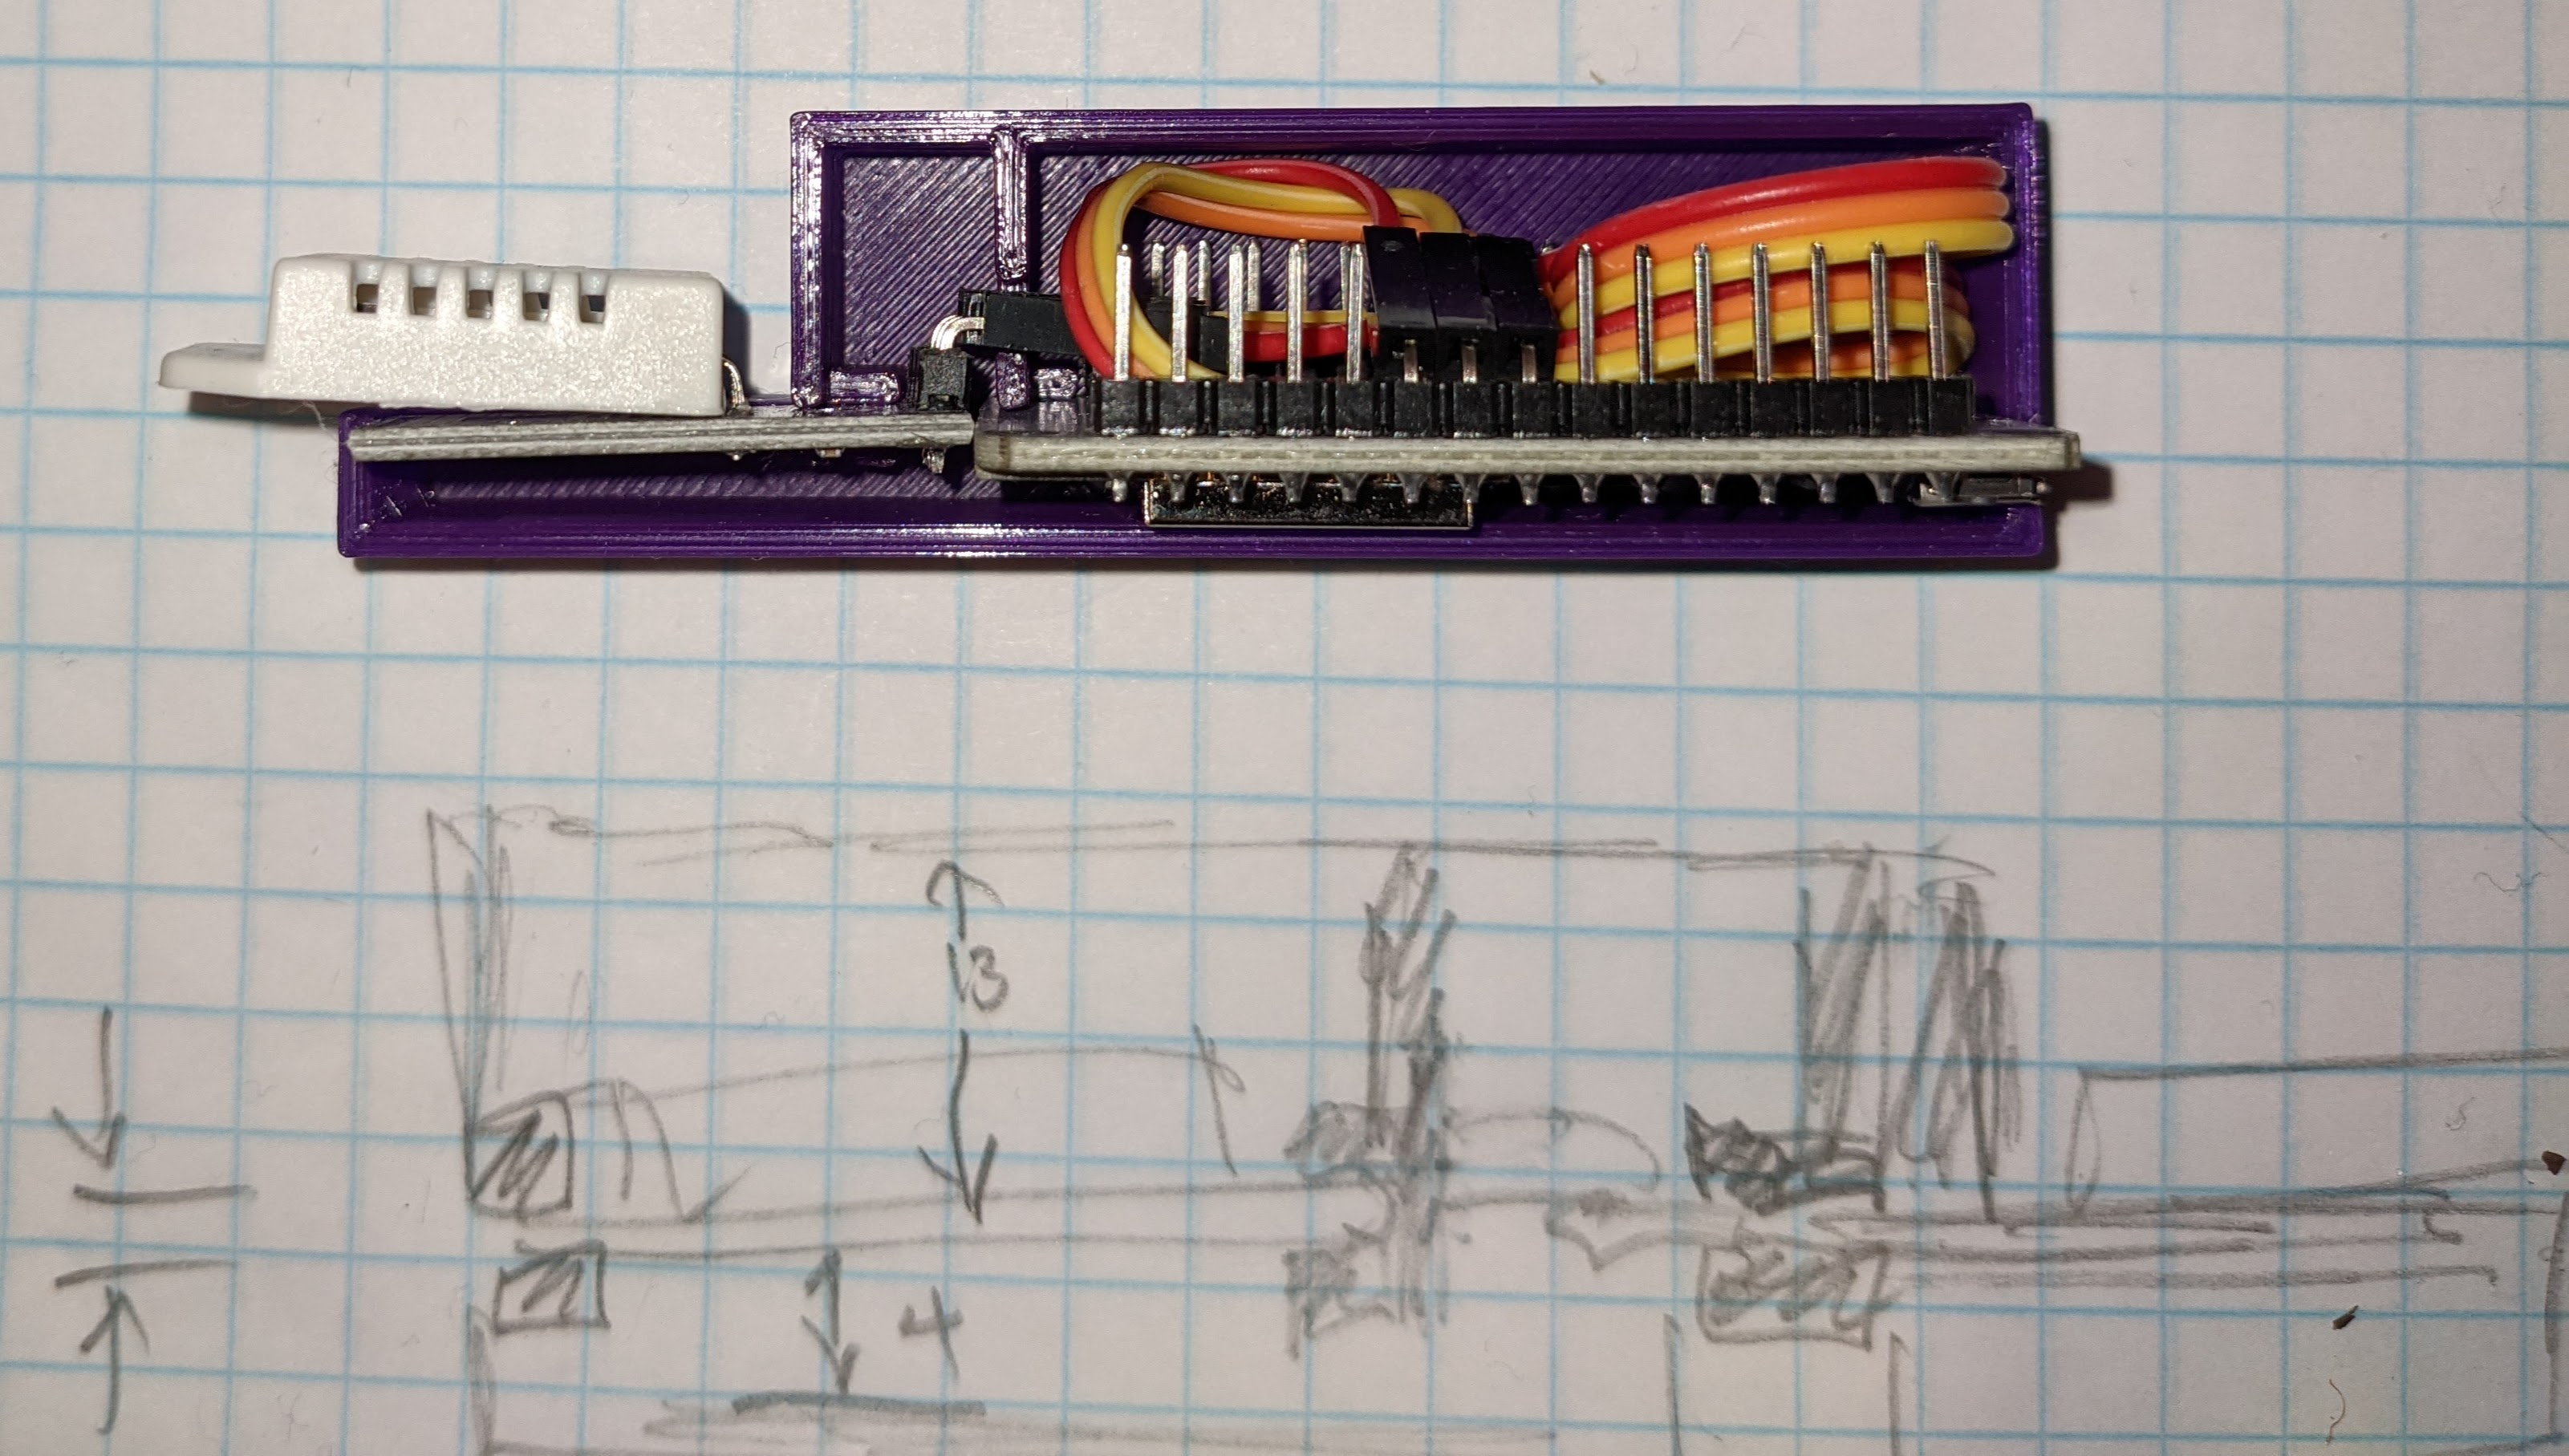 13
4